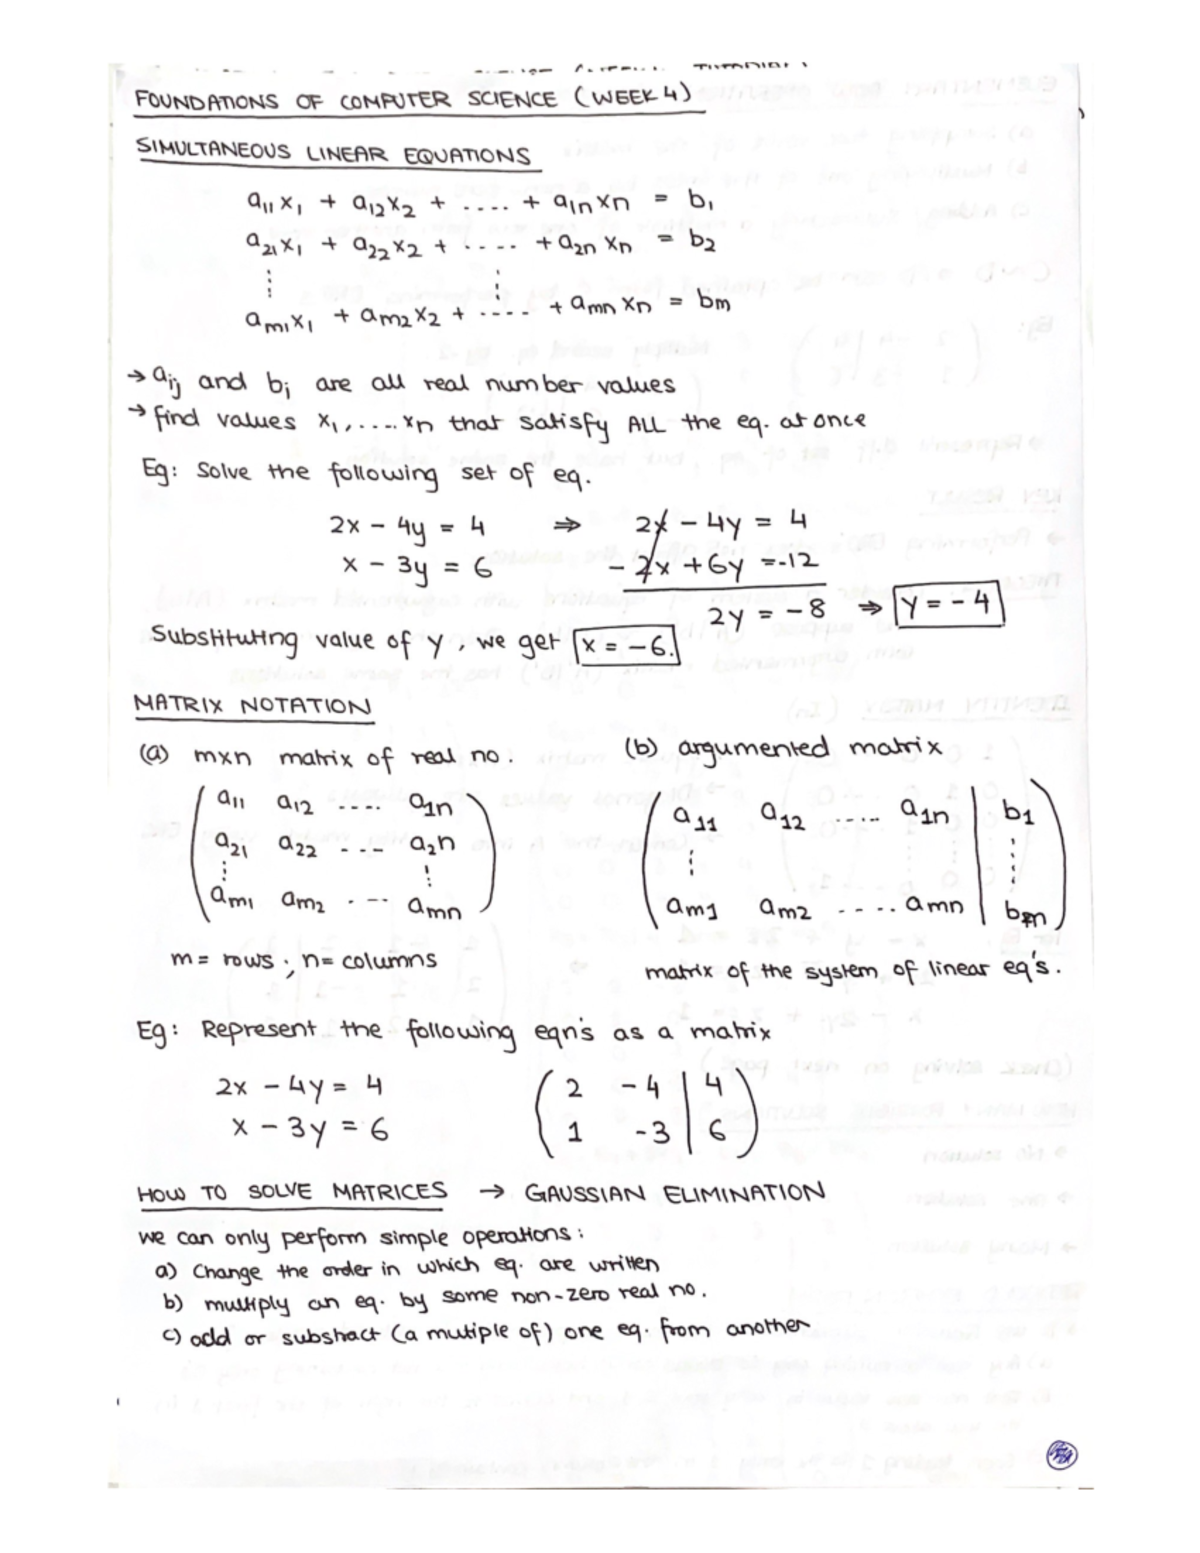 FOUNDATIONS OF COMPUTER SCIENCE (WEEK 4)
SIMULTANEOUS LINEAR EQUATIONS
a11 x1 + a12 x2 + .... + a1n xn = b1
a21 x1 + a22 x2 + .... + a2n xn = b2
⋮ ⋮
am1 x1 + am2 x2 + .... + amn xn = bm
→ aij and bj are all real number values
→ find values x1, .... xn that satisfy ALL the eq. at once
Eg: Solve the following set of eq.
2x - 4y = 4 ⇒ 2x - 4y = 4
x - 3y = 6 - 2x + 6y = -12
2y = -8 ⇒ y = -4
Substituting value of y, we get x = -6.
MATRIX NOTATION
(a) mxn matrix of real no. (b) argumented matrix
a11 a12 .... a1n a11 a12 ..... a1n | b1
a21 a22 ... a2n
⋮ ⋮ ⋮ ⋮
am1 am2 . -- amn am1 am2 ..... amn | bm
m = rows ; n = columns
matrix of the system of linear eq's.
Eg: Represent the following eqn's as a matrix
2x - 4y = 4 ( 2 -4 | 4 )
x - 3y = 6 ( 1 -3 | 6 )
HOW TO SOLVE MATRICES → GAUSSIAN ELIMINATION
we can only perform simple operations:
a) Change the order in which eq. are written
b) multiply an eq. by some non-zero real no.
c) add or substract (a mutiple of) one eq. from another